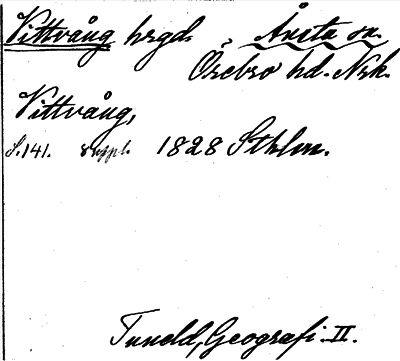 Vittvång hrgd., Ånsta sn.
Örebro hd. Nrk.
Vittvång,
S. 141. suppl. 1828 Sthlm.
Tuneld, Geografi. II.